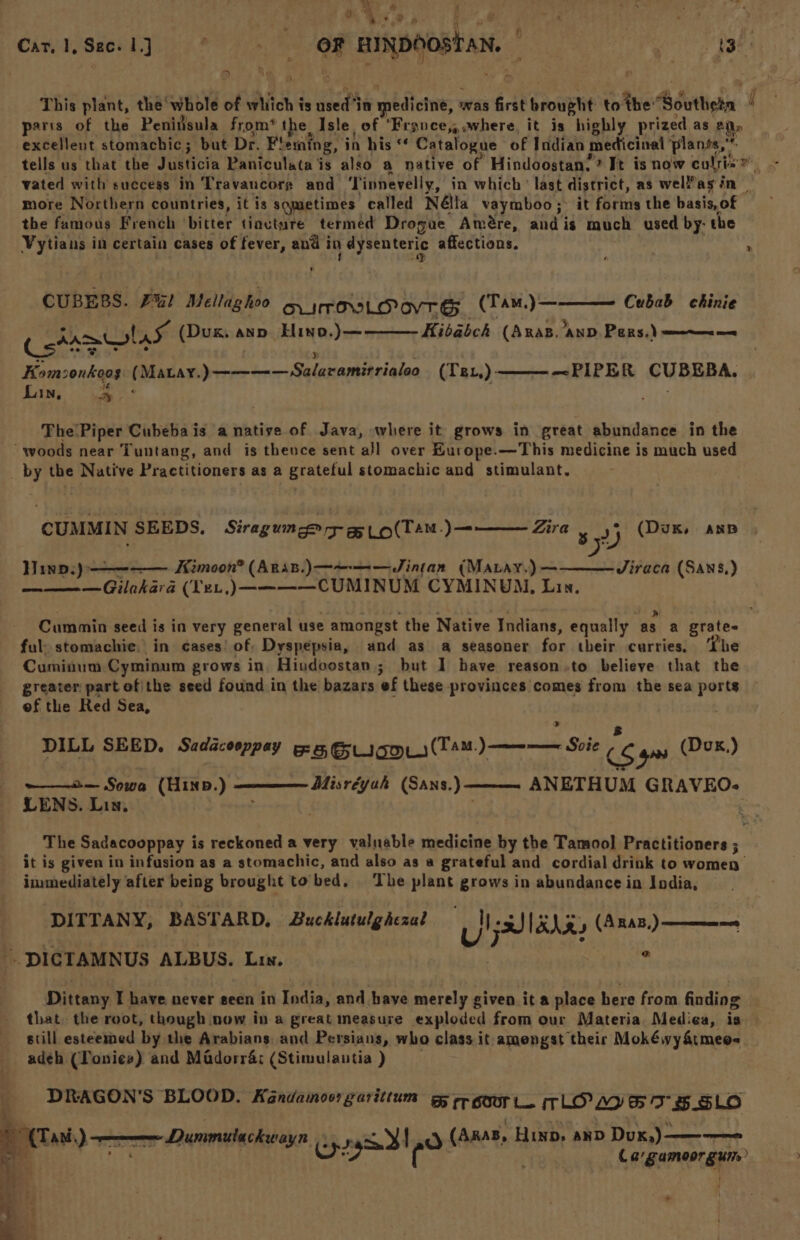 Cat. 1, Sec. 1.] OF HINDOOSTAN. 13
This plant, the whole of which is used in medicine, was first brought to the Southern
parts of the Peninsula from the Isle of France, where it is highly prized as an
excellent stomachic; but Dr. Fleming, in his “ Catalogue of Indian medicinal plants,”
tells us that the Justicia Paniculata is also a native of Hindoostan. It is now culti-
vated with success in Travancore and Tinnevelly, in which last district, as well as in
more Northern countries, it is sometimes called Nélla vaymboo; it forms the basis of
the famous French bitter tincture termed Drogue Amère, and is much used by the
Vytians in certain cases of fever, and in dysenteric affections.
CUBEBS. Vál Mellaghoo வால்மிளகு (Tam.)——— Cubab chinie
کباب چینی (Duk. and Hind.)——— Kibabch (Arab. and Pers.)———
Komoonkoos (Malay.)———Salavamirrialoo (Tel.)———PIPER CUBEBA.
Lin.
The Piper Cubeba is a native of Java, where it grows in great abundance in the
woods near Tuntang, and is thence sent all over Europe.—This medicine is much used
by the Native Practitioners as a grateful stomachic and stimulant.
CUMMIN SEEDS. Siragum சீரகம் (Tam.)——— Zira زيره (Duk. and
Hind.)——— Kimoon (Arab.)———Jintan (Malay.)———Jiraca (Sans.)
———Gilakárá (Tel.)———CUMINUM CYMINUM, Lin.
Cummin seed is in very general use amongst the Native Indians, equally as a grate-
ful stomachic in cases of Dyspepsia, and as a seasoner for their curries. The
Cuminum Cyminum grows in Hindoostan; but I have reason to believe that the
greater part of the seed found in the bazars of these provinces comes from the sea ports
of the Red Sea.
DILL SEED. Sadácooppay சதகுப்பை (Tam.)——— Soie سوي (Duk.)
———Sowa (Hind.)——— Misréyah (Sans.)——— ANETHUM GRAVEO-
LENS. Lin.
The Sadacooppay is reckoned a very valuable medicine by the Tamool Practitioners;
it is given in infusion as a stomachic, and also as a grateful and cordial drink to women
immediately after being brought to bed. The plant grows in abundance in India,
DITTANY, BASTARD, Bucklutulghezal بقلةالغزال (Arab.)———
DICTAMNUS ALBUS. Lin.
Dittany I have never seen in India, and have merely given it a place here from finding
that the root, though now in a great measure exploded from our Materia Medica, is
still esteemed by the Arabians and Persians, who class it amongst their Mokéwyátmee-
adeh (Tonics) and Mádorrá: (Stimulantia )
DRAGON'S BLOOD. Kándamoorgarittum காண்டாமிருகரத்தம்
(Tam.)———Dummulackwayn دم الاخوين (Arab, Hind. and Duk,)———
Cargamoorgum